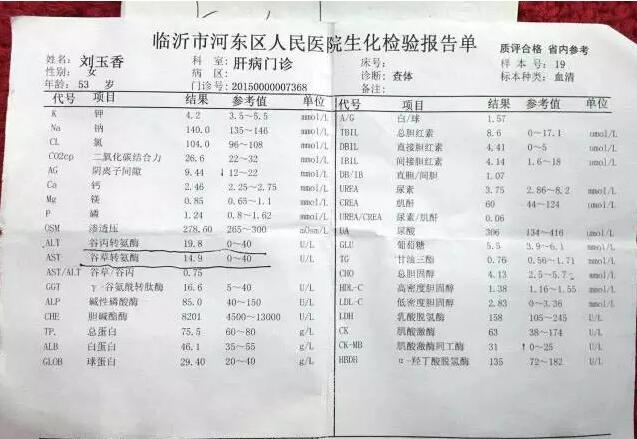 临沂市河东区人民医院生化检验报告单
质评合格 省内参考
姓名: 刘玉香 科 室: 肝病门诊 床号: 样 本 号: 19
性别: 女 病 区: 诊断: 查体 标本种类: 血清
年龄: 53 岁 门诊号: 20150000007368 备注:
代号 项目 结果 参考值 单位
K 钾 4.2 3.5~5.5 mmol/L
Na 钠 140.0 135~146 mmol/L
CL 氯 104.0 96~108 mmol/L
CO2cp 二氧化碳结合力 26.6 22~32 mmol/L
AG 阴离子间隙 9.44 ↓12~22 mmol/L
Ca 钙 2.46 2.25~2.75 mmol/L
Mg 镁 0.85 0.65~1.1 mmol/L
P 磷 1.24 0.8~1.62 mmol/L
OSM 渗透压 278.60 265~300 mOsm/L
ALT 谷丙转氨酶 19.8 0~40 U/L
AST 谷草转氨酶 14.9 0~40 U/L
AST/ALT 谷草/谷丙 0.75
GGT γ-谷氨酰转肽酶 16.6 5~40 U/L
ALP 碱性磷酸酶 85.0 40~150 U/L
CHE 胆碱酯酶 8201 4500~13000 U/L
TP. 总蛋白 75.5 60~80 g/L
ALB 白蛋白 46.1 35~55 g/L
GLOB 球蛋白 29.40 20~40 g/L
代号 项目 结果 参考值 单位
A/G 白/球 1.57
TBIL 总胆红素 8.6 0~17.1 umol/L
DBIL 直接胆红素 4.41 0~5 umol/L
IBIL 间接胆红素 4.14 1.6~18 umol/L
DB/IB 直胆/间胆 1.07
UREA 尿素 3.75 2.86~8.2 mmol/L
CREA 肌酐 60 44~124 umol/L
UREA/CREA 尿素/肌酐 0.06
UA 尿酸 306 134~416 umol/L
GLU 葡萄糖 5.5 3.9~6.1 mmol/L
TG 甘油三酯 0.76 0.56~1.71 mmol/L
CHO 总胆固醇 4.13 2.5~5.7 mmol/L
HDL-C 高密度胆固醇 1.38 1.16~1.55 mmol/L
LDL-C 低密度胆固醇 2.83 0~3.36 mmol/L
LDH 乳酸脱氢酶 158 105~245 U/L
CK 肌酸激酶 63 38~174 U/L
CK-MB 肌酸激酶同工酶 31 ↑0~25 U/L
HBDH α-羟丁酸脱氢酶 135 72~182 U/L